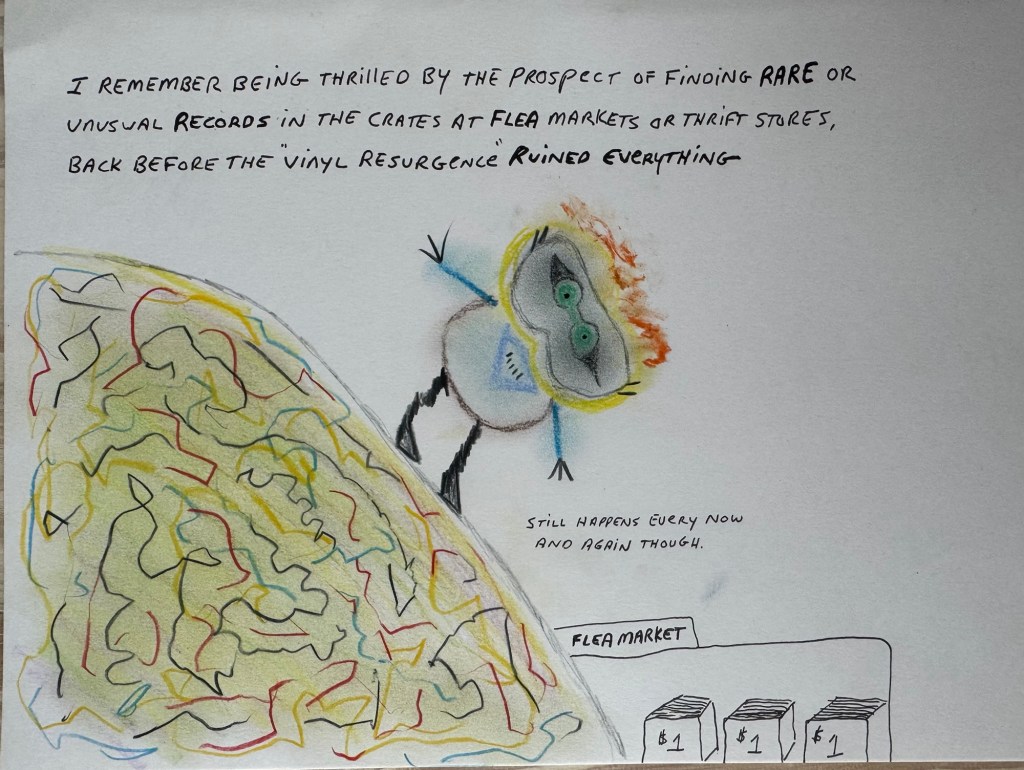 I REMEMBER BEING THRILLED BY THE PROSPECT OF FINDING RARE OR
UNUSUAL RECORDS IN THE CRATES AT FLEA MARKETS OR THRIFT STORES,
BACK BEFORE THE "VINYL RESURGENCE" RUINED EVERYTHING
STILL HAPPENS EVERY NOW
AND AGAIN THOUGH.
FLEA MARKET
$1 $1 $1